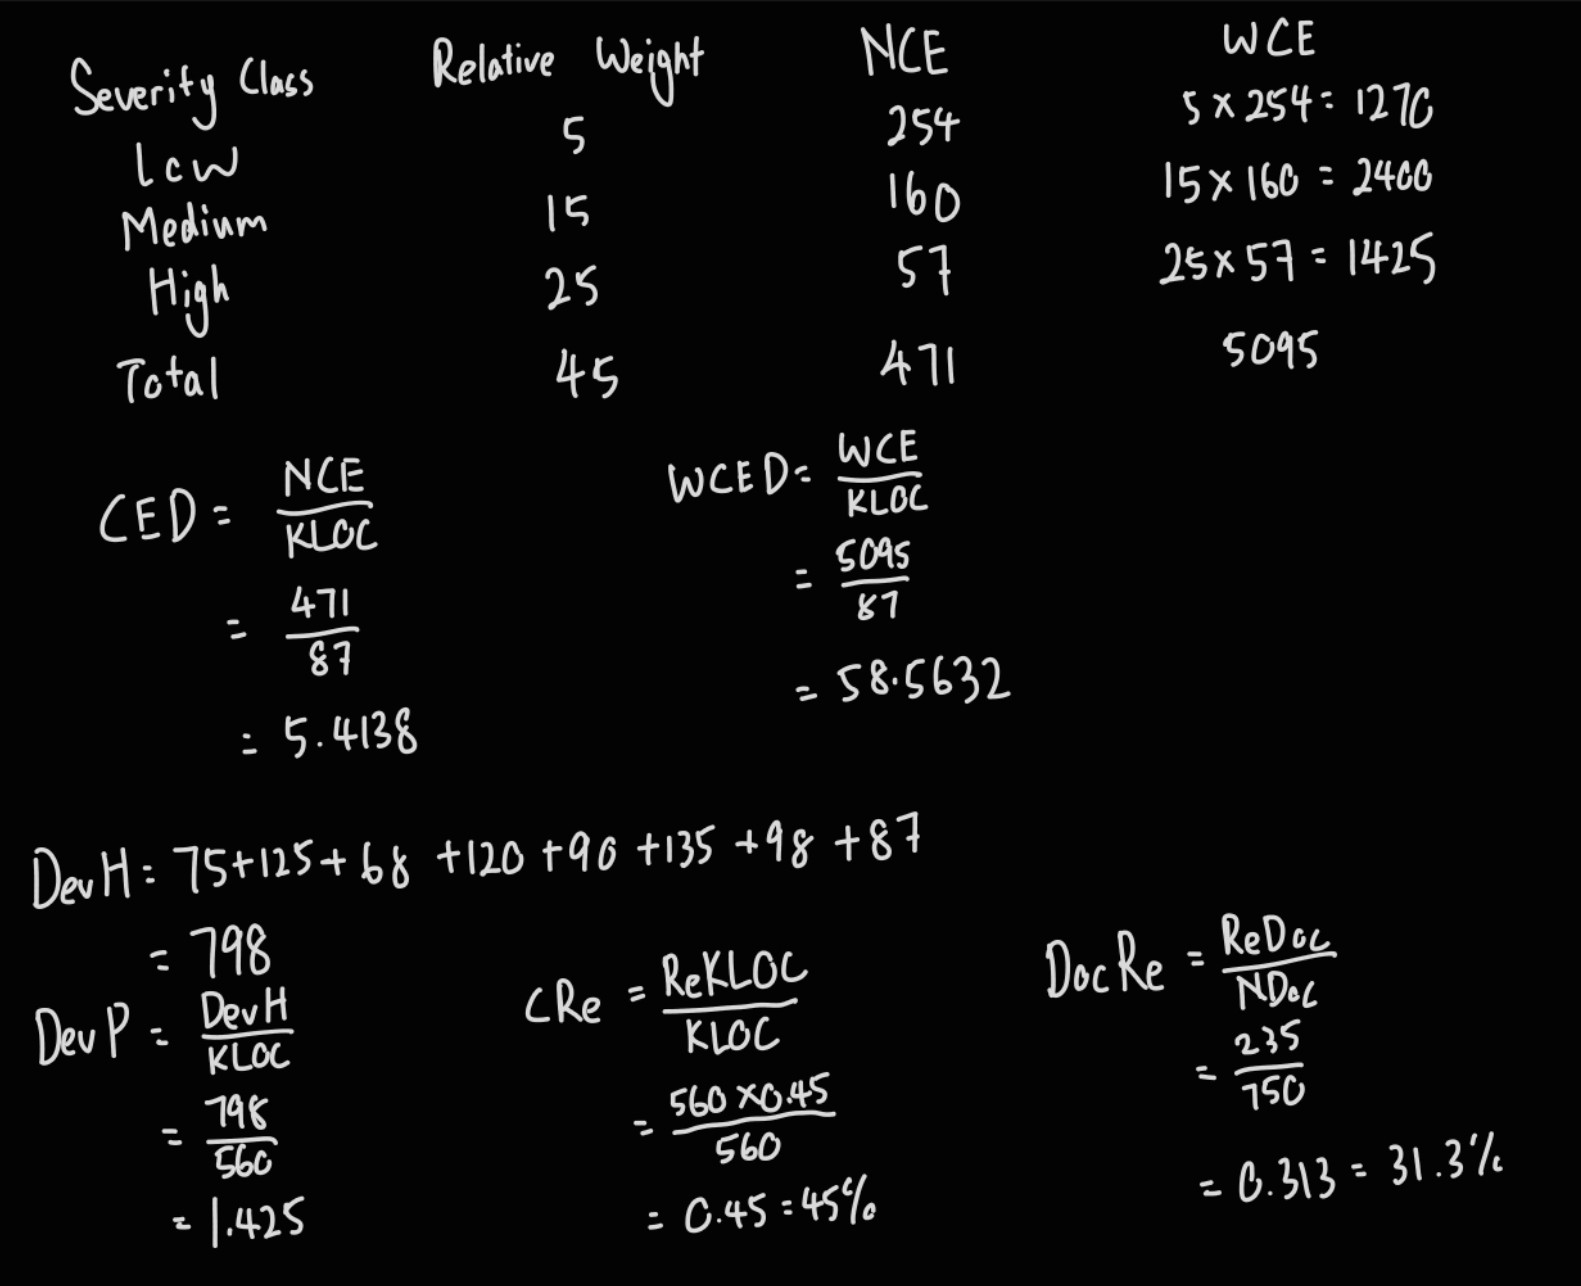 Severity Class Relative Weight NCE WCE
Low 5 254 5 x 254 = 1270
Medium 15 160 15 x 160 = 2400
High 25 57 25 x 57 = 1425
Total 45 471 5095
CED = NCE / KLOC
= 471 / 87
= 5.4138
WCED = WCE / KLOC
= 5095 / 87
= 58.5632
DevH = 75+125+68+120+90+135+98+87
= 798
DevP = DevH / KLOC
= 798 / 560
= 1.425
CRe = ReKLOC / KLOC
= 560 x 0.45 / 560
= 0.45 = 45%
DocRe = ReDoc / NDoc
= 235 / 750
= 0.313 = 31.3%